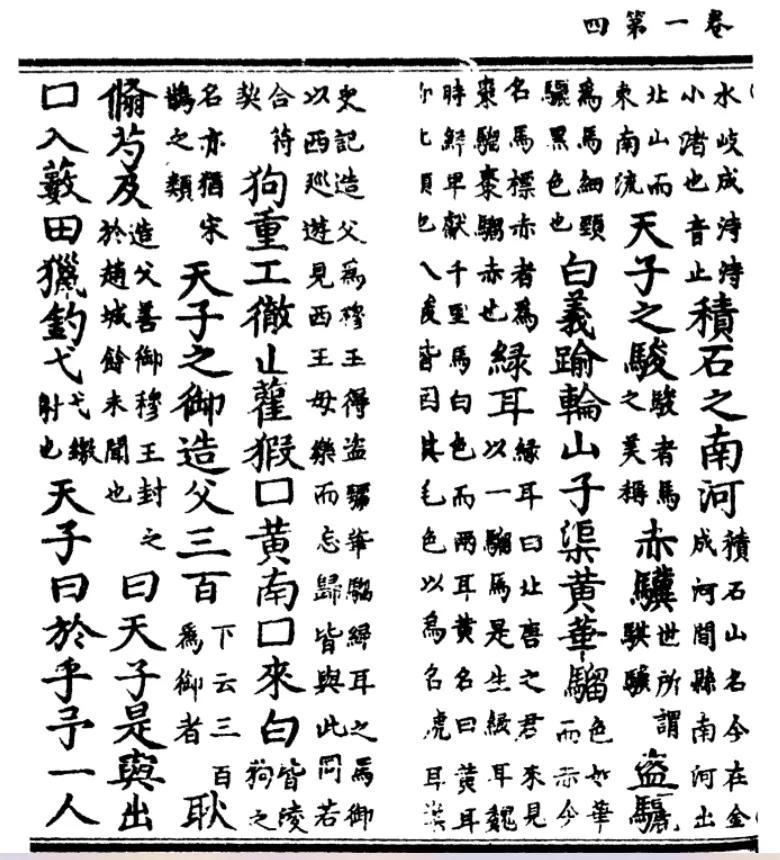 卷一第四
水岐成洔洔
小渚也音止
積石之南河
積石山名今在金
成河間縣南河出
北山而
東南流
天子之駿
駿者馬
之美稱
赤驥
世所謂
騏驥
盜驪
為馬細頸
驪黑色也
白義踰輪山子渠黃華騮
色如華
而赤今
名馬標赤者為
棗騮棗騮赤也
綠耳
綠耳曰北唐之君來見
以一騮馬是生綠耳魏
時鮮卑獻千里馬白色而兩耳黃名曰黃耳
類也八駿皆因其毛色以為名虎耳
史記造父為穆王得盜驪華騮綠耳之馬御
以西巡遊見西王母樂而忘歸皆與此同若
合符
契
狗重工徹止雚猳囗黃南囗來白
皆陵
狗之
名亦猶宋
鵲之類
天子之御造父三百
下云三百
為御者
耿
翛芍及
造父善御穆王封之
於趙城餘未聞也
曰天子是與出
囗入藪田獵釣弋
弋繳
射也
天子曰於乎予一人